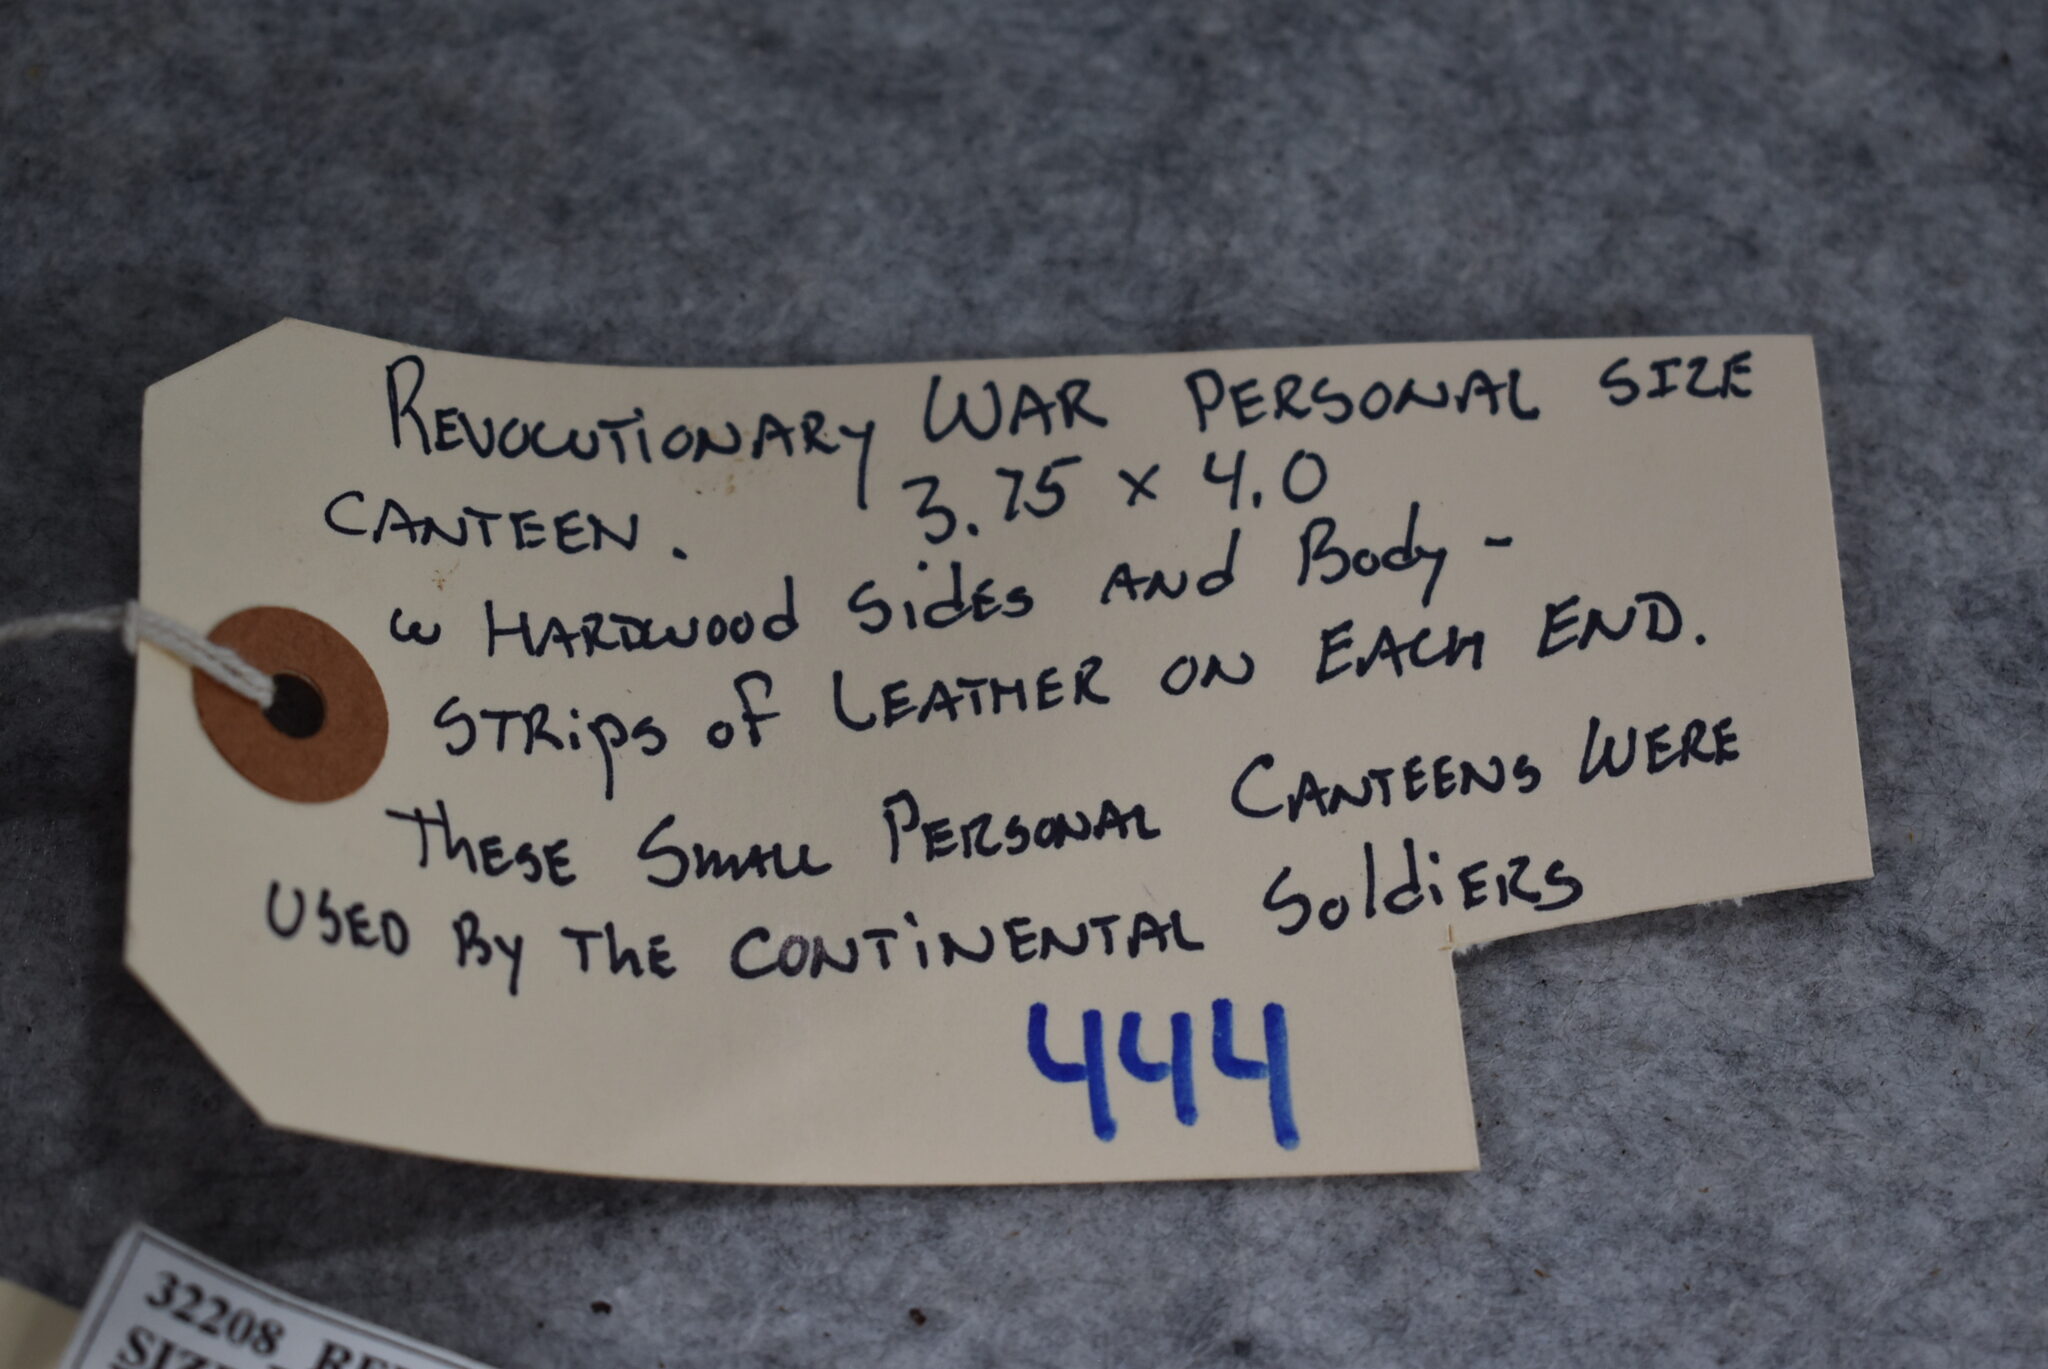 REVOLUTIONARY WAR PERSONAL SIZE
CANTEEN. 3.75 x 4.0
w HARDWOOD SidES ANd Body -
STRips of LEATHER ON EACH END.
THESE SMALL PERSONAL CANTEENS WERE
USED By ThE CONTiNENTAL SoldiERS
444
32208